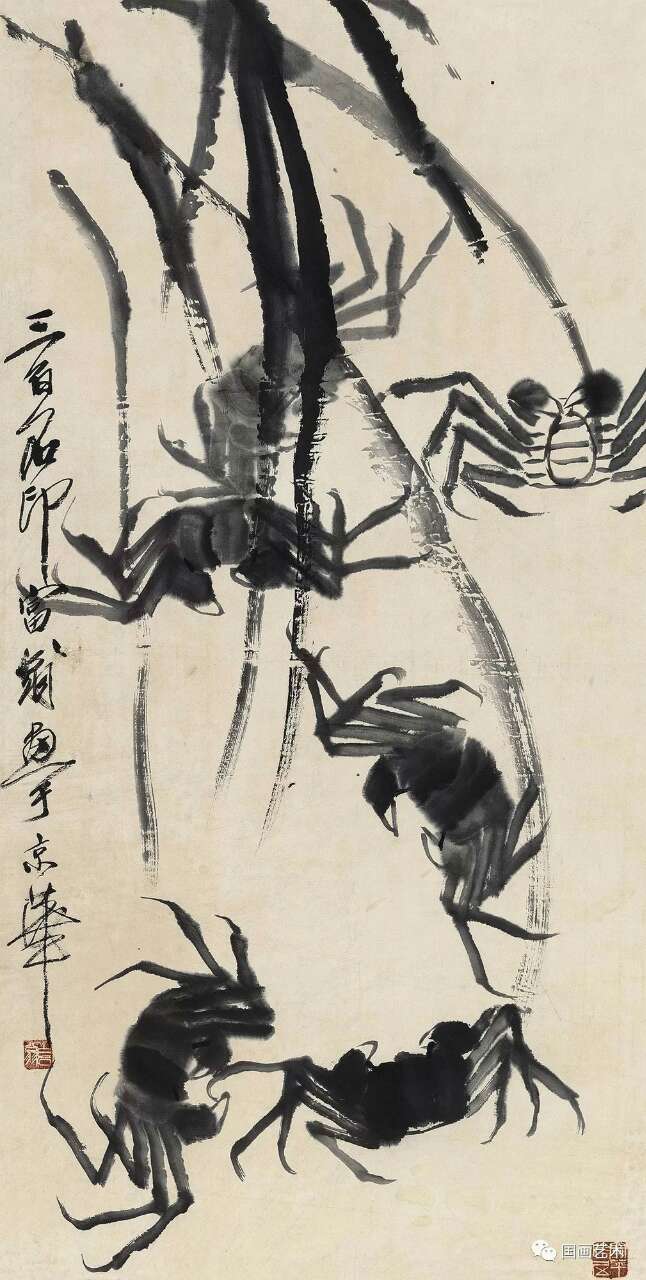 三百石印富翁畫于京華
国画艺术